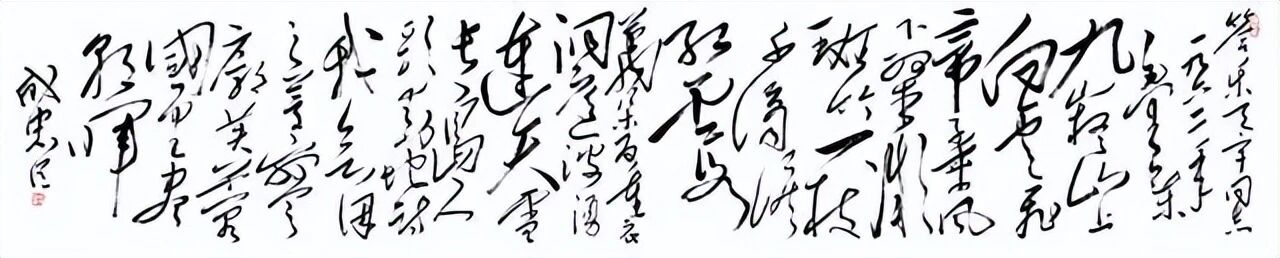 答乐天宇同志
一九六二年
九嶷山上
白云飞
帝子乘风
下翠微
斑竹一枝
千滴泪
红霞
万朵百重衣
洞庭波涌
连天雪
长岛人
歌动地诗
我欲因
之梦寥
廓芙蓉
国里尽
朝晖